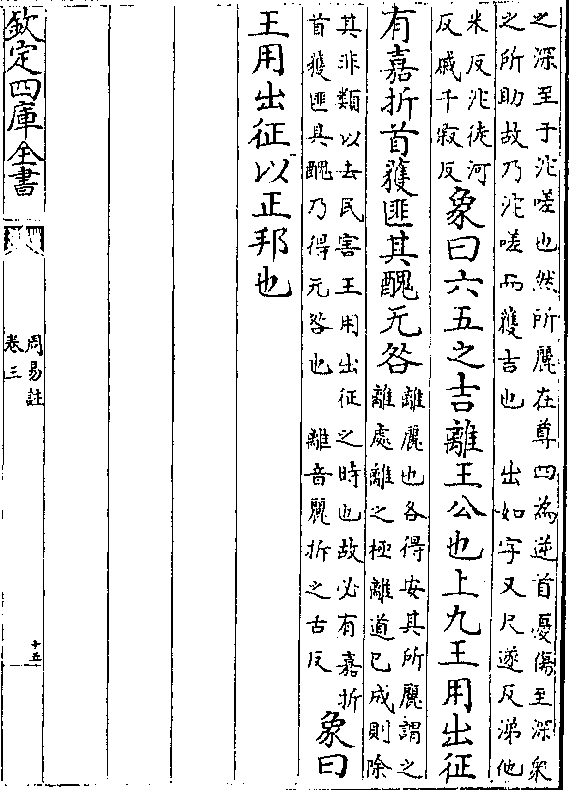 之深至于沱嗟也然所麗在尊四為逆首憂傷至深衆
之所助故乃沱嗟而獲吉也　出如字又尺遂反涕他
米反沱徒河
反戚千寂反
象曰六五之吉離王公也上九王用出征
有嘉折首獲匪其醜无咎
離麗也各得安其所麗謂之
離處離之極離道已成則除
其非類以去民害王用出征之時也故必有嘉折
首獲匪其醜乃得无咎也　離音麗折之舌反
象曰
王用出征以正邦也
欽定四庫全書
周易註
卷三
十五